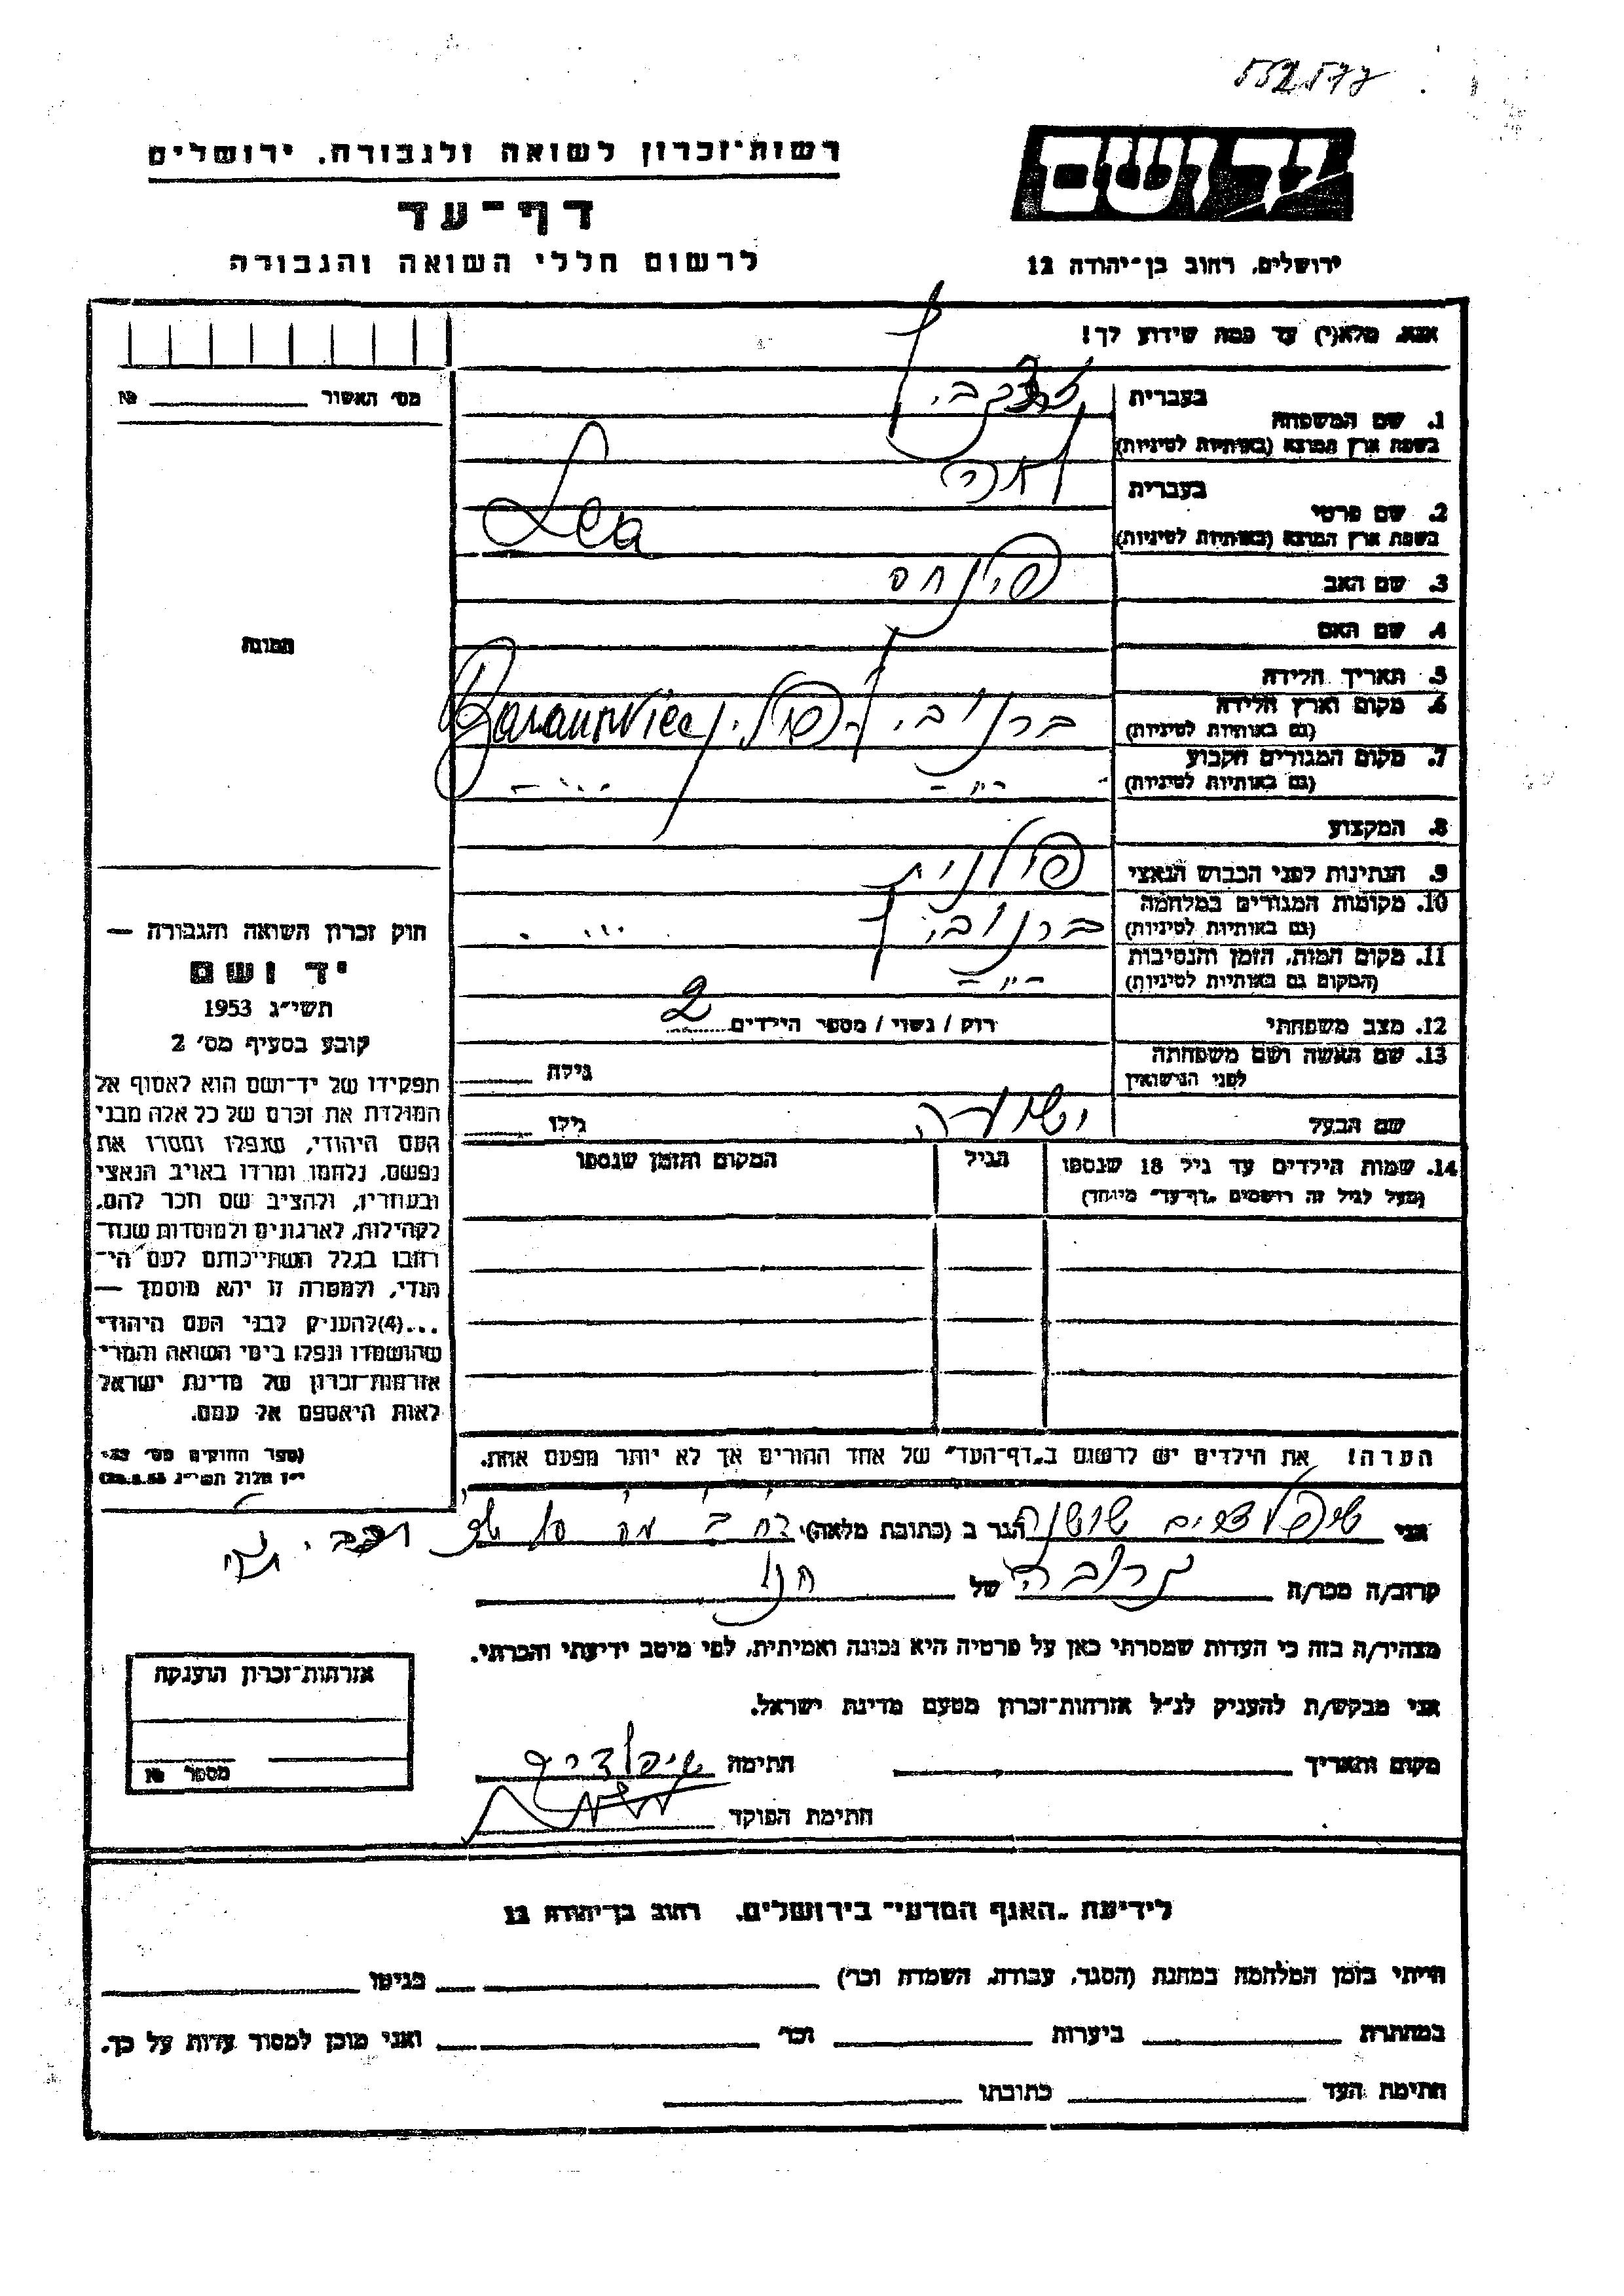 רשות־זכרון לשואה ולגבורה, ירושלים
יד ושם
דף־עד
לרשום חללי השואה והגבורה
ירושלים, רחוב בן־יהודה 12
אנא, מלא(י) עד כמה שידוע לך!
מס' האשור №
בעברית
1. שם המשפחה
בשפת ארץ המוצא (באותיות לטיניות)
בעברית לאה
2. שם פרטי
בשפת ארץ המוצא (באותיות לטיניות) Lea
3. שם האב פינחס
4. שם האם
תמונה
5. תאריך הלידה
6. מקום וארץ הלידה
(גם באותיות לטיניות) פולין
7. מקום המגורים הקבוע
(גם באותיות לטיניות) - " -
8. המקצוע
9. הנתינות לפני הכבוש הנאצי פולנית
10. מקומות המגורים במלחמה
(גם באותיות לטיניות)
11. מקום המות, הזמן והנסיבות
(המקום גם באותיות לטיניות) - " -
12. מצב משפחתי רווק / נשוי / מספר הילדים 2
13. שם האשה ושם משפחתה
לפני הנישואין גילה
שם הבעל גילו
14. שמות הילדים עד גיל 18 שנספו הגיל המקום והזמן שנספו
(מעל לגיל זה רושמים "דף־עד" מיוחד)
חוק זכרון השואה והגבורה —
יד ושם
תשי"ג 1953
קובע בסעיף מס' 2
תפקידו של יד־ושם הוא לאסוף אל
המולדת את זכרם של כל אלה מבני
העם היהודי, שנפלו ומסרו את
נפשם, נלחמו ומרדו באויב הנאצי
ובעוזריו, ולהציב שם וזכר להם,
לקהילות, לארגונים ולמוסדות שנח־
רבו בגלל השתייכותם לעם הי־
הודי, ולמטרה זו יהא מוסמך —
...(4) להעניק לבני העם היהודי
שהושמדו ונפלו בימי השואה והמרי
אזרחות־זכרון של מדינת ישראל
לאות היאספם אל עמם.
(ספר החוקים מס'
הערה! את הילדים יש לרשום ב"דף־העד" של אחד ההורים אך לא יותר מפעם אחת.
אני שושנה הגר ב (כתובת מלאה)
קרוב/ה מכר/ה קרובה של
מצהיר/ה בזה כי העדות שמסרתי כאן על פרטיה היא נכונה ואמיתית, לפי מיטב ידיעתי והכרתי.
אני מבקש/ת להעניק לנ"ל אזרחות־זכרון מטעם מדינת ישראל.
מקום ותאריך חתימה
חתימת הפוקד
אזרחות־זכרון הוענקה
מספר №
לידיעת "האגף המדעי" בירושלים, רחוב בן־יהודה 12
הייתי בזמן המלחמה במחנה (הסגר, עבודה, השמדה וכו') בגיטו
במחתרת ביערות וכו' ואני מוכן למסור עדות על כך.
חתימת העד כתובתו